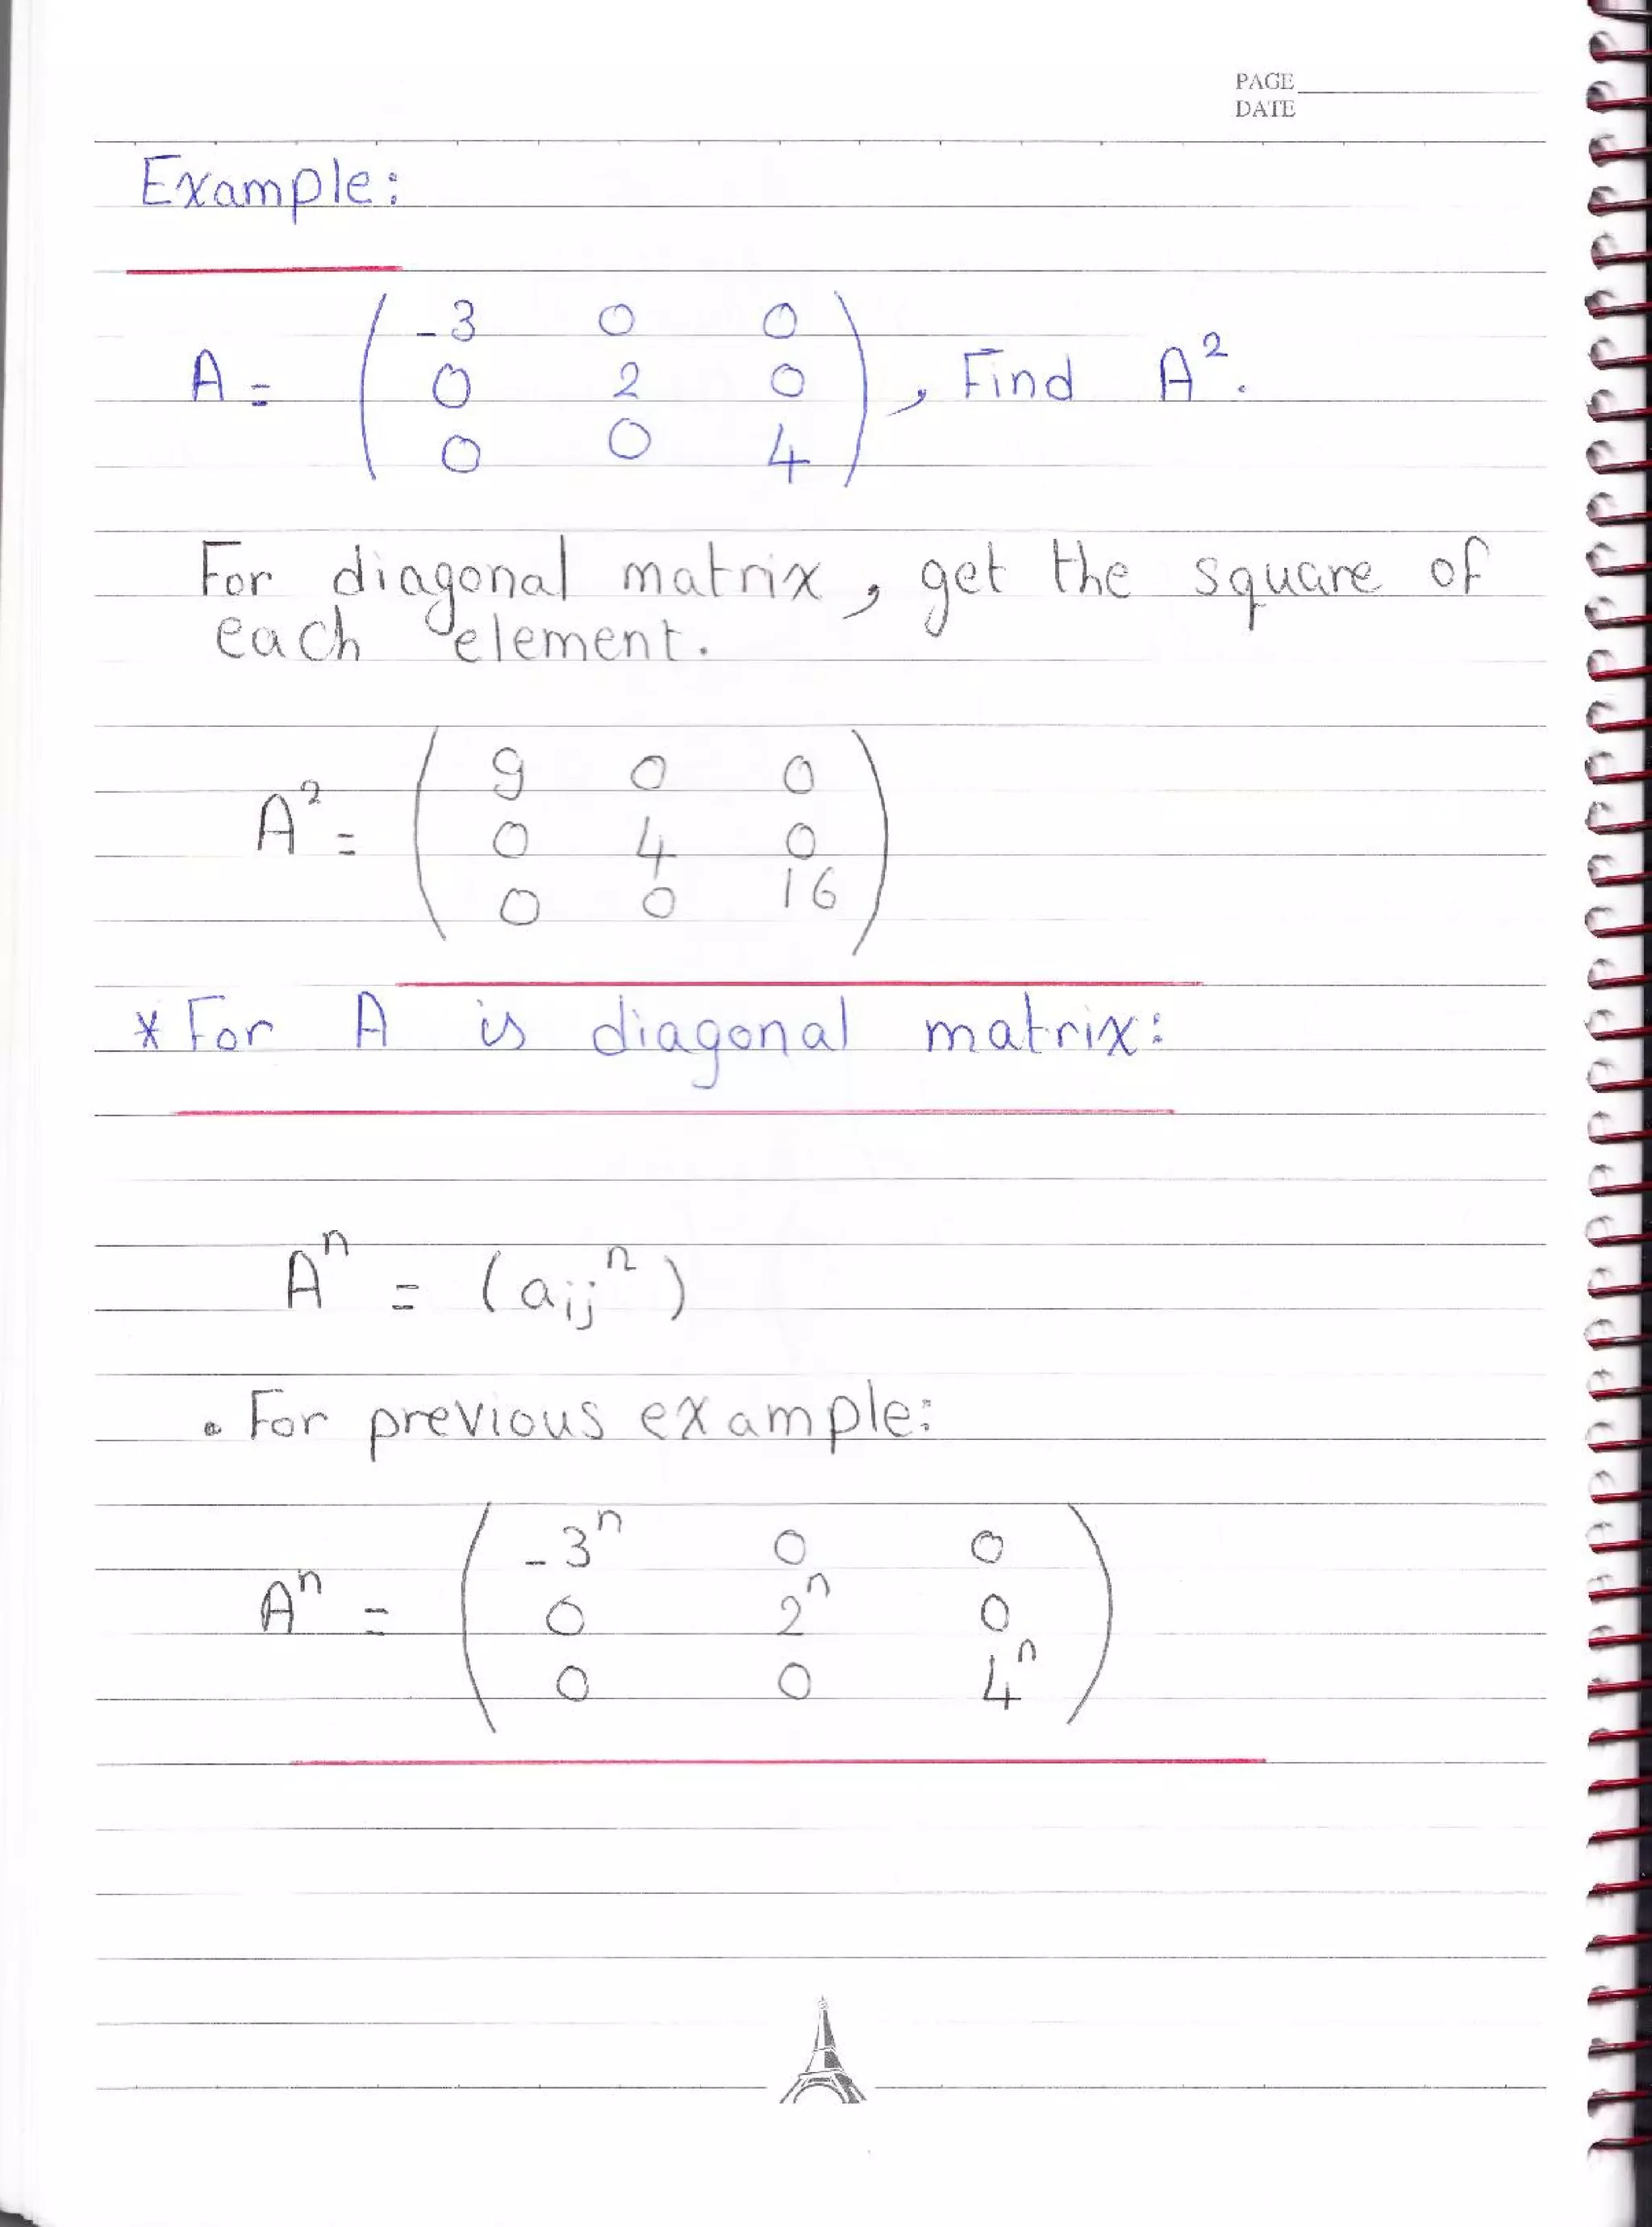 PAGE
DATE
Example:
A = ( -3 0 0
0 2 0
0 0 4 ) , Find A².
For diagonal matrix, get the square of
each element.
A² = ( 9 0 0
0 4 0
0 0 16 )
* For A is diagonal matrix:
Aⁿ = (aᵢⱼⁿ)
• For previous example:
Aⁿ = ( -3ⁿ 0 0
0 2ⁿ 0
0 0 4ⁿ )